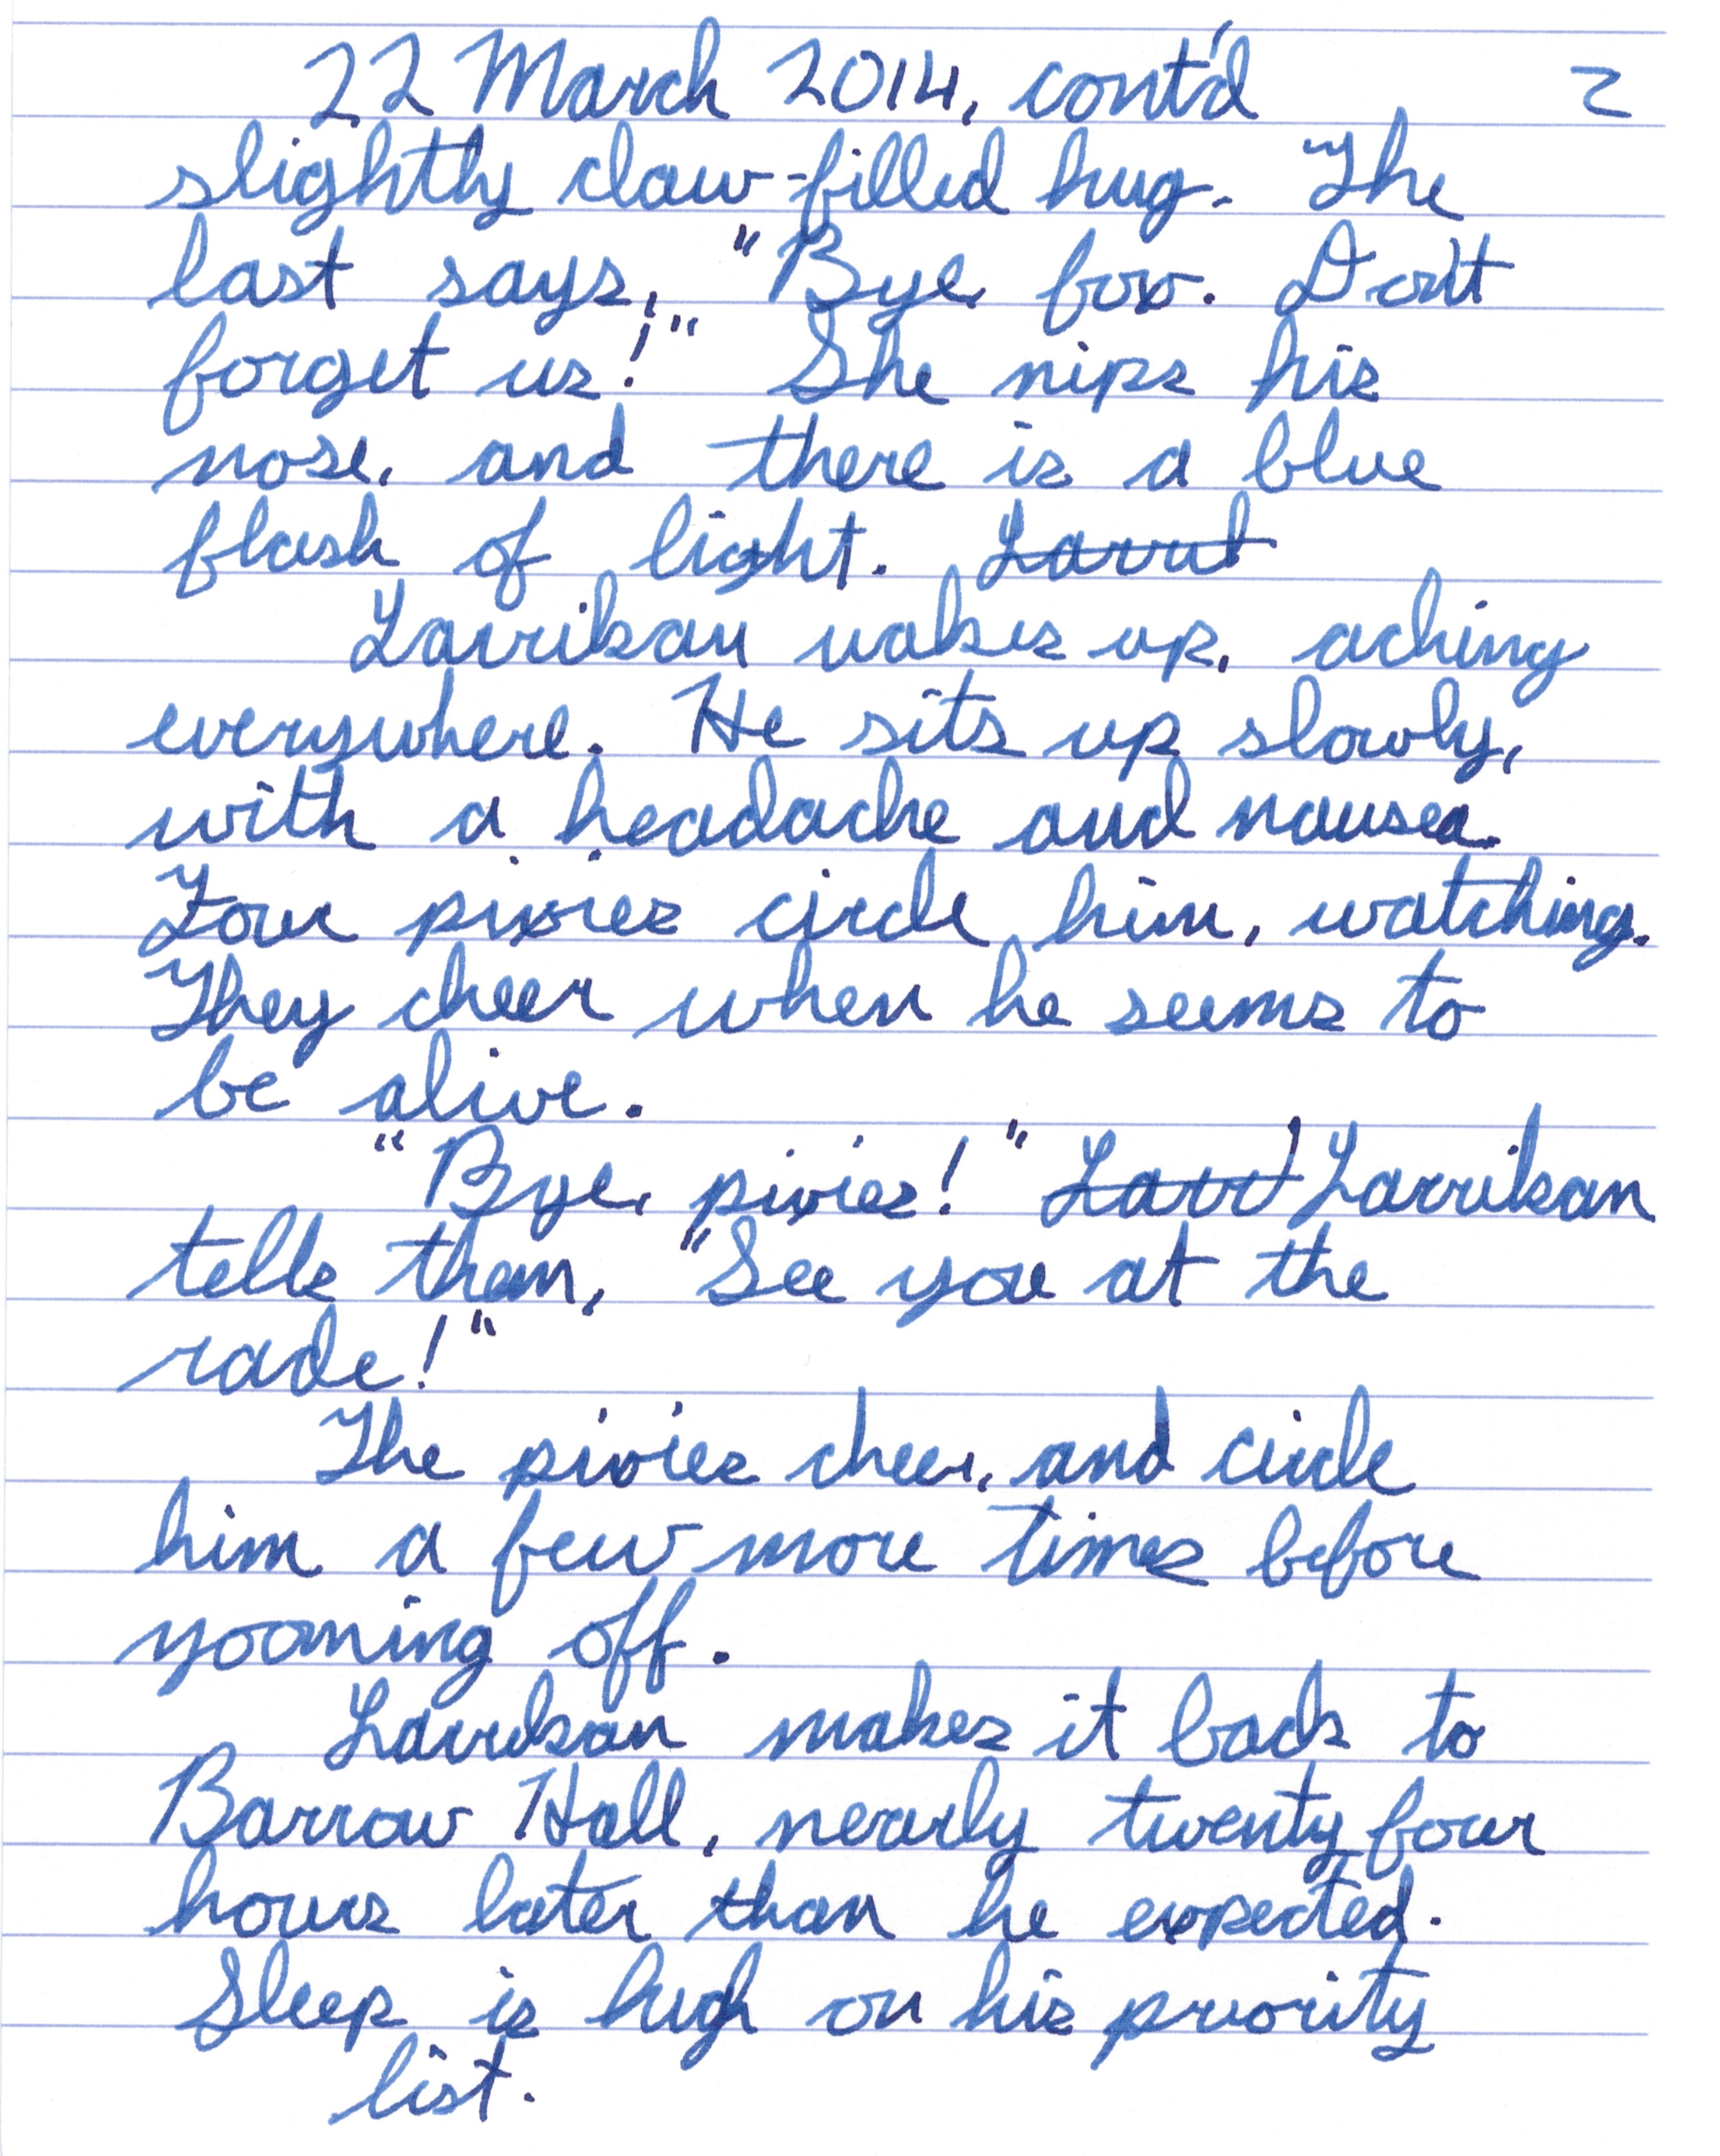 22 March 2014, cont'd 2
slightly claw-filled hug. The
last says, "Bye, fox. Don't
forget us!" She nips his
nose, and there is a blue
flash of light.
Larrikan wakes up, aching
everywhere. He sits up slowly,
with a headache and nausea.
Four pixies circle him, watching.
They cheer when he seems to
be alive.
"Bye, pixies!" Larrikan
tells them, "See you at the
rade!"
The pixies cheer, and circle
him a few more times before
yooming off.
Larrikan makes it back to
Barrow Hall, nearly twenty four
hours later than he expected.
Sleep is high on his priority
list.